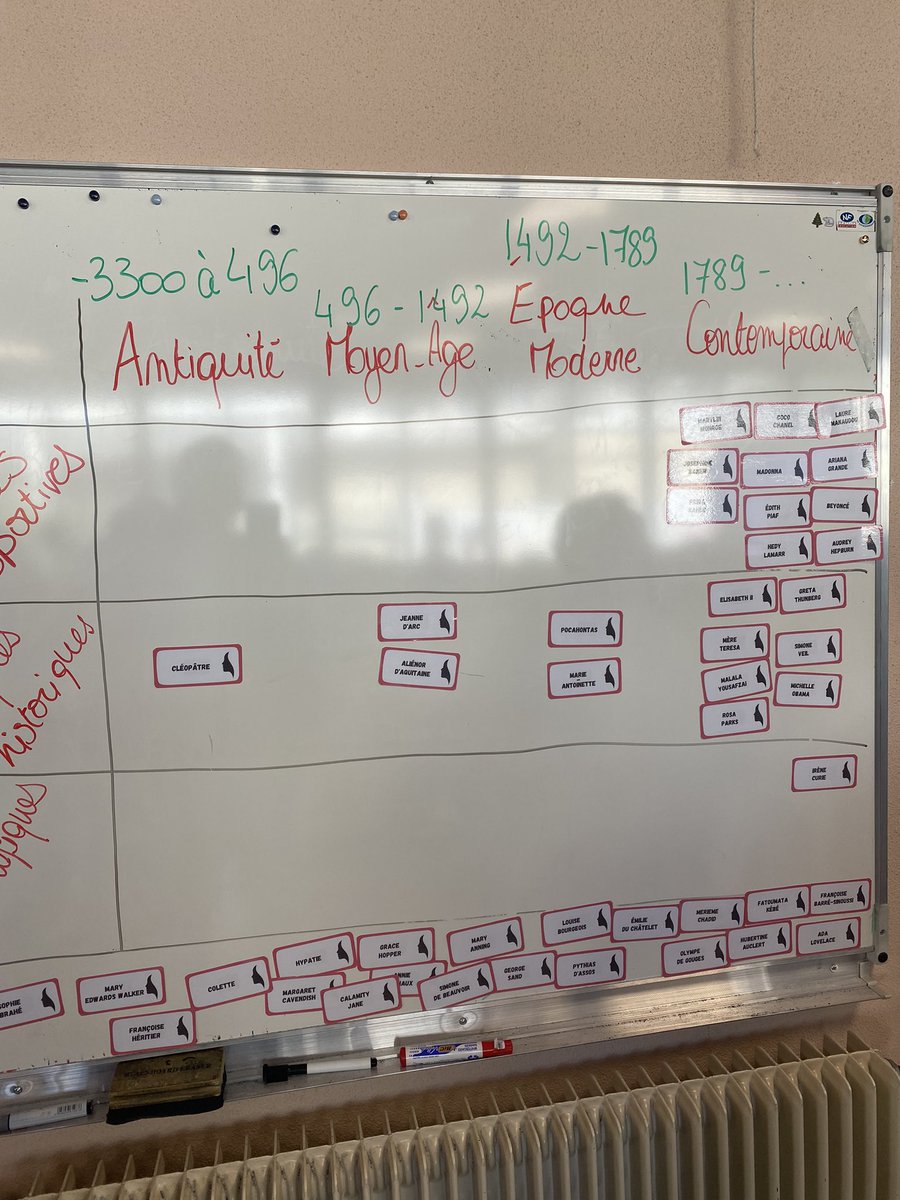 -3300 à 496
496 - 1492
1492 - 1789
1789 - ...
Antiquité
Moyen-Age
Epoque
Moderne
Contemporaine
MARYLIN
MONROE
COCO
CHANEL
LAURE
MANAUDOU
JOSEPHINE
BAKER
MADONNA
ARIANA
GRANDE
FRIDA
KAHLO
ÉDITH
PIAF
BEYONCÉ
HEDY
LAMARR
AUDREY
HEPBURN
sportives
historiques
CLÉOPÂTRE
JEANNE
D'ARC
ALIÉNOR
D'AQUITAINE
POCAHONTAS
MARIE
-
ANTOINETTE
ELISABETH II
GRETA
THUNBERG
MÈRE
TERESA
SIMONE
VEIL
MALALA
YOUSAFZAI
MICHELLE
OBAMA
ROSA
PARKS
IRÈNE
CURIE
SOPHIE
BRAHÉ
MARY
EDWARDS WALKER
FRANÇOISE
HÉRITIER
COLETTE
HYPATIE
MARGARET
CAVENDISH
GRACE
HOPPER
CALAMITY
JANE
MARY
ANNING
SIMONE
DE BEAUVOIR
GEORGE
SAND
LOUISE
BOURGEOIS
PYTHIAS
D'ASSOS
ÉMILIE
DU CHÂTELET
MERIEME
CHADID
OLYMPE
DE GOUGES
FATOUMATA
KÉBÉ
HUBERTINE
AUCLERT
FRANÇOISE
BARRÉ-SINOUSSI
ADA
LOVELACE
NF